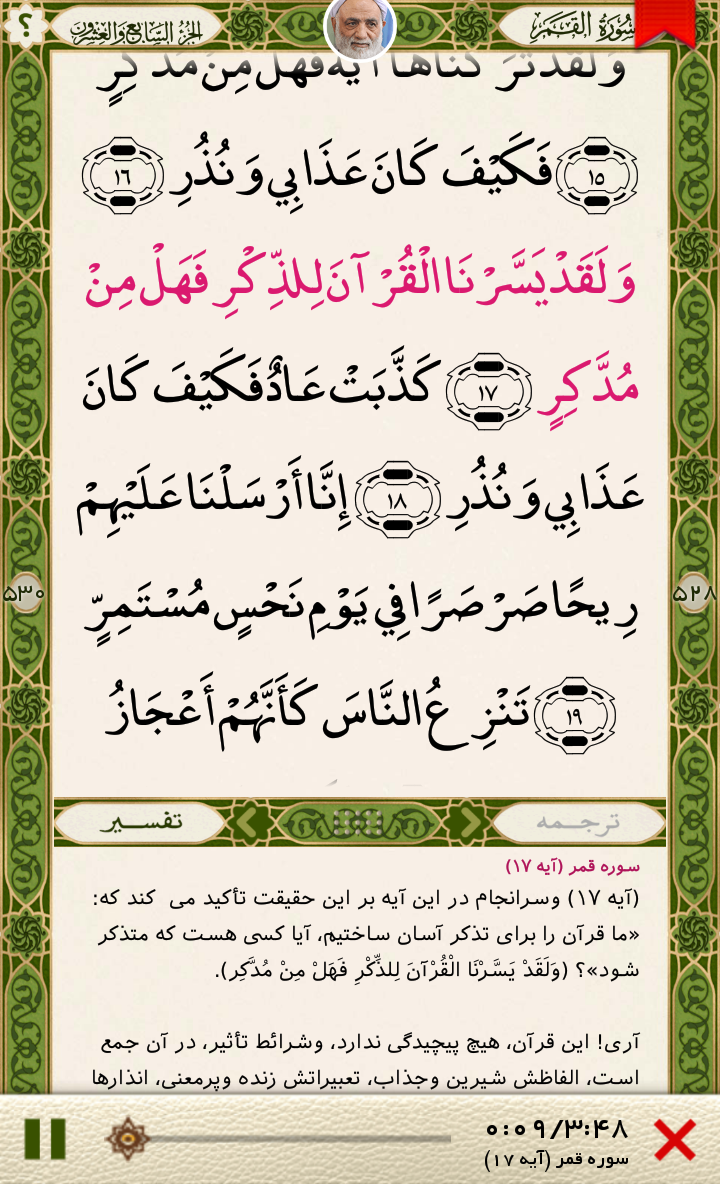 ؟
الجزء السابع والعشرون
سُورَةُ القَمَر
وَلَقَدْ تَرَكْنَاهَا آيَةً فَهَلْ مِنْ مُدَّكِرٍ
﴿١٥﴾ فَكَيْفَ كَانَ عَذَابِي وَنُذُرِ ﴿١٦﴾
وَلَقَدْ يَسَّرْنَا الْقُرْآنَ لِلذِّكْرِ فَهَلْ مِنْ
مُدَّكِرٍ ﴿١٧﴾ كَذَّبَتْ عَادٌ فَكَيْفَ كَانَ
عَذَابِي وَنُذُرِ ﴿١٨﴾ إِنَّا أَرْسَلْنَا عَلَيْهِمْ
رِيحًا صَرْصَرًا فِي يَوْمِ نَحْسٍ مُسْتَمِرٍّ
﴿١٩﴾ تَنْزِعُ النَّاسَ كَأَنَّهُمْ أَعْجَازُ
۵۲۸
۵۳۰
ترجمه
تفسیر
سوره قمر (آیه ۱۷)
(آیه ۱۷) وسرانجام در این آیه بر این حقیقت تأکید می کند که:
«ما قرآن را برای تذکر آسان ساختیم، آیا کسی هست که متذکر
شود»؟ (وَلَقَدْ يَسَّرْنَا الْقُرْآنَ لِلذِّكْرِ فَهَلْ مِنْ مُدَّكِرٍ).
آری! این قرآن، هیچ پیچیدگی ندارد، وشرائط تأثیر، در آن جمع
است، الفاظش شیرین وجذاب، تعبیراتش زنده وپرمعنی، انذارها
۰:۰۹/۳:۴۸
سوره قمر (آیه ۱۷)